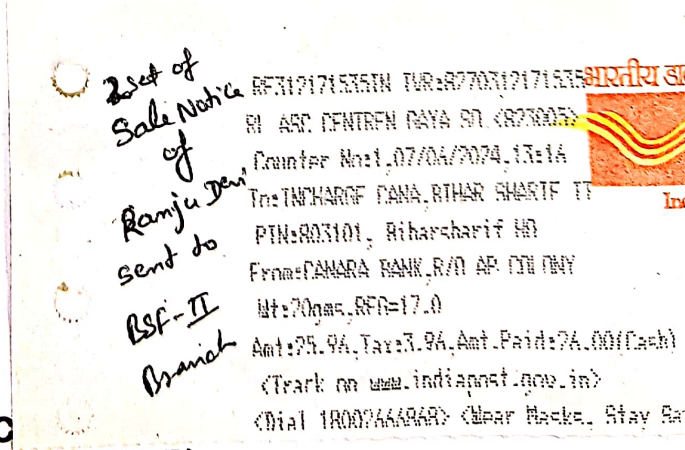 2 set of
Sale Notice
of
Ranju Devi
sent to
BSF-II
Branch
RF312171535IN IVR:8270312171535
भारतीय डा
RI ASC CENTREN GAYA SO <823005>
Counter No:1,07/06/2024,13:16
To:INCHARGE CANA,BIHAR SHARIF II
PIN:803101, Biharsharif HO
From:CANARA BANK,R/O AP COLONY
Wt:20gms,REG=17.0
Amt:25.96,Tax:3.96,Amt.Paid:26.00(Cash)
<Track on www.indiapost.gov.in>
<Dial 18002666868> <Wear Masks, Stay Sa